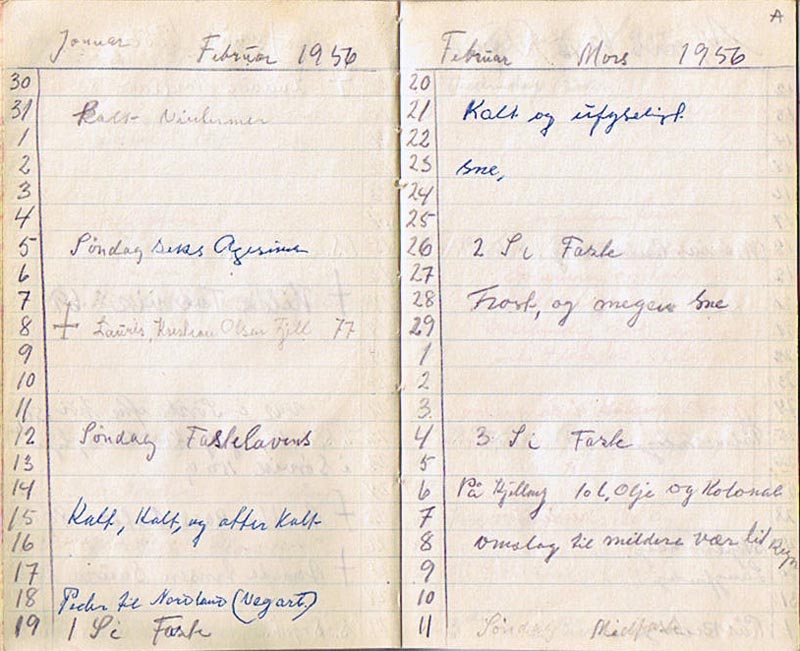 Januar Februar 1956
30
31 Kalt Vintermer
1
2
3
4
5 Søndag seks Agesima
6
7
8 Laurits, Kristian Olsen Fjell 77
9
10
11
12 Søndag Fastelavens
13
14
15 Kalt, Kalt, og atter Kalt
16
17
18 Peder til Nordland (Vegart.)
19 1 S i Faste
A
Februar Mars 1956
20
21 Kalt og ufyseligt.
22
23 Sne,
24
25
26 2 S i Faste
27
28 Frost, og megen Sne
29
1
2
3
4 3 S i Faste
5
6 På Kjilling 10 l, Olje og Kolonial
7
8 omslag til mildere vær lit Regn
9
10
11 Søndag Midfaste